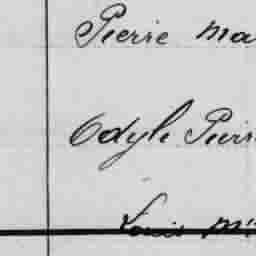 Pierre Ma
Odyle Pierr
Louis M